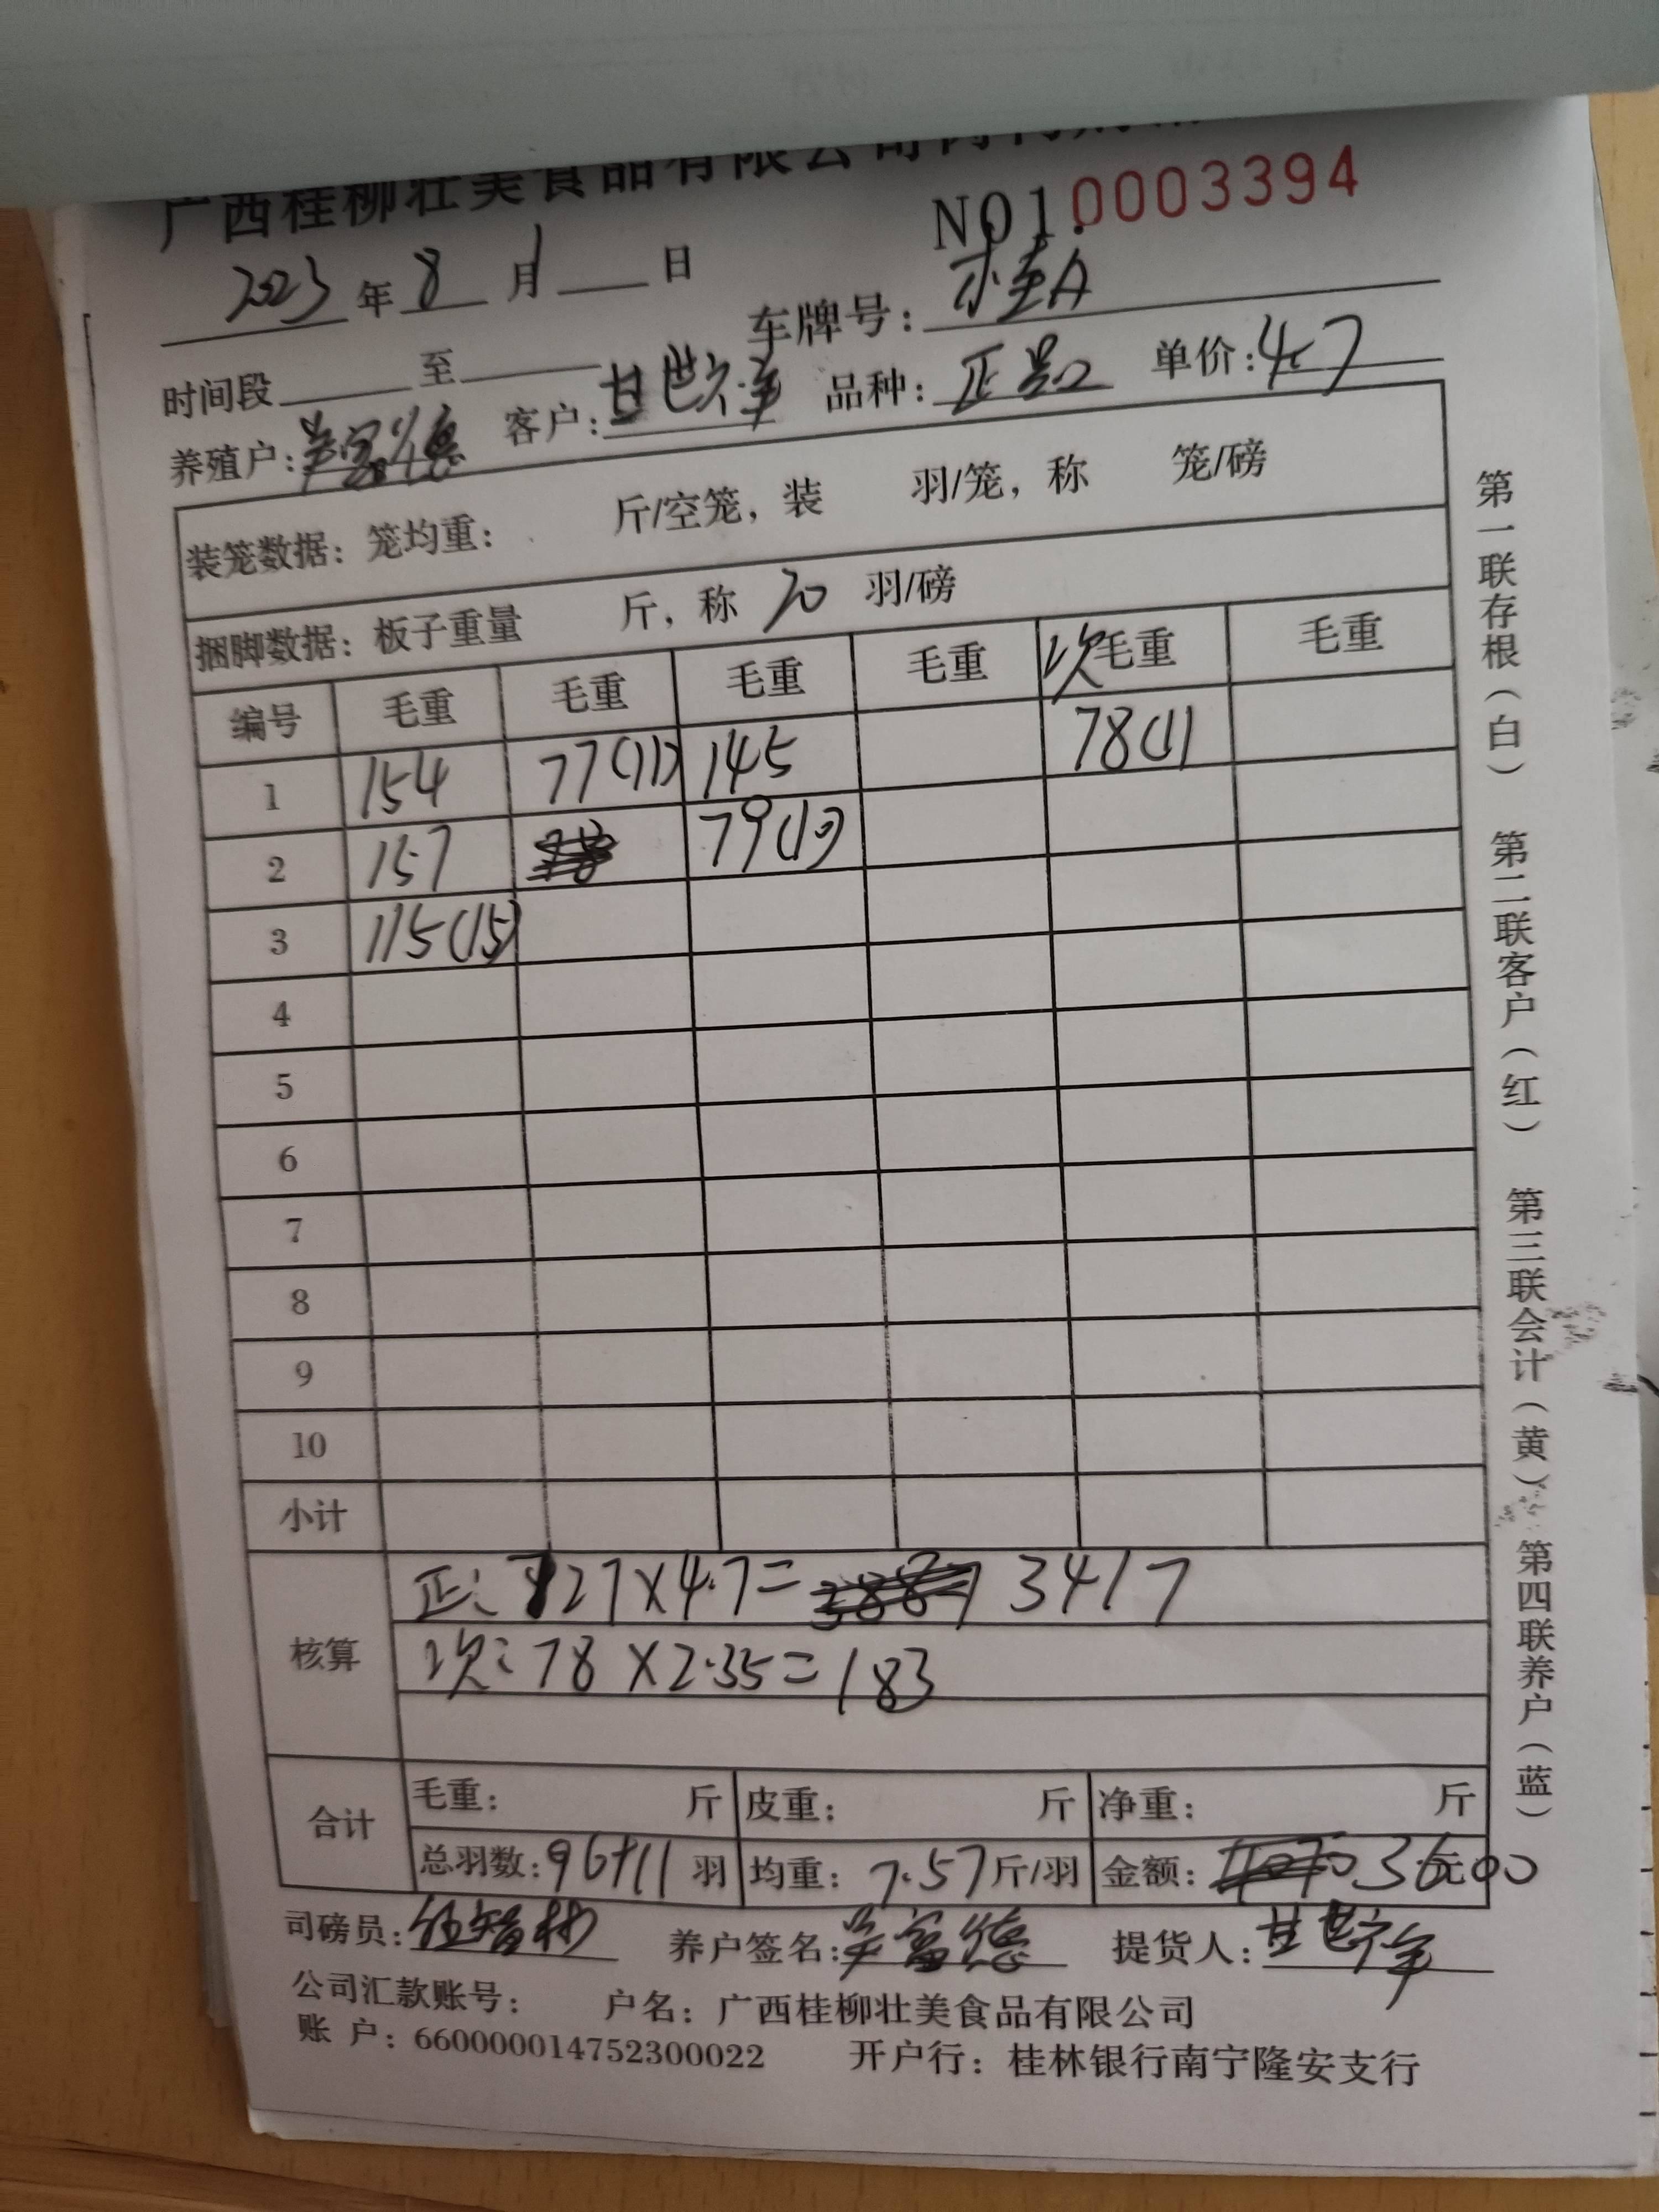 广西桂柳壮美食品有限公司
NO1.0003394
2023年8月1日
车牌号：桂A
时间段 至
养殖户：吴富德 客户： 品种：正 单价：4.7
装笼数据：笼均重： 斤/空笼，装 羽/笼，称 笼/磅
捆脚数据：板子重量 斤，称 20 羽/磅
编号 毛重 毛重 毛重 毛重 次毛重 毛重
1 154 77(11) 145 78(11)
2 157 79(10)
3 115(15)
4
5
6
7
8
9
10
小计
核算 正：727×4.7= 3417
次：78×2.35=183
合计 毛重： 斤 皮重： 斤 净重： 斤
总羽数：96+11 羽 均重：7.57斤/羽 金额：3600元
司磅员： 养户签名：吴富德 提货人：
公司汇款账号： 户名：广西桂柳壮美食品有限公司
账 户：660000014752300022 开户行：桂林银行南宁隆安支行
第一联存根（白） 第二联客户（红） 第三联会计（黄） 第四联养户（蓝）